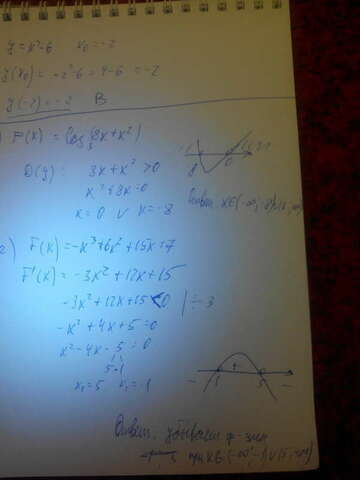 y = x²-6    x₀ = -2
y(x₀) = -2²-6 = 4-6 = -2
y(-2) = -2    B
) F(x) = log₃(8x+x²)
D(y):  8x+x² > 0
x²+8x=0
x=0 ∪ x=-8
-8    0
Ответ x∈(-∞;-8)∪(0;+∞)
2) F(x) = -x³+6x²+15x+7
F'(x) = -3x²+12x+15
-3x²+12x+15<0 | ÷3
-x²+4x+5=0
x²-4x-5=0
5-1
x₁=5  x₂=-1
-  +  -
Ответ: убывает ф-ция
при x∈(-∞;-1)∪(5;+∞)